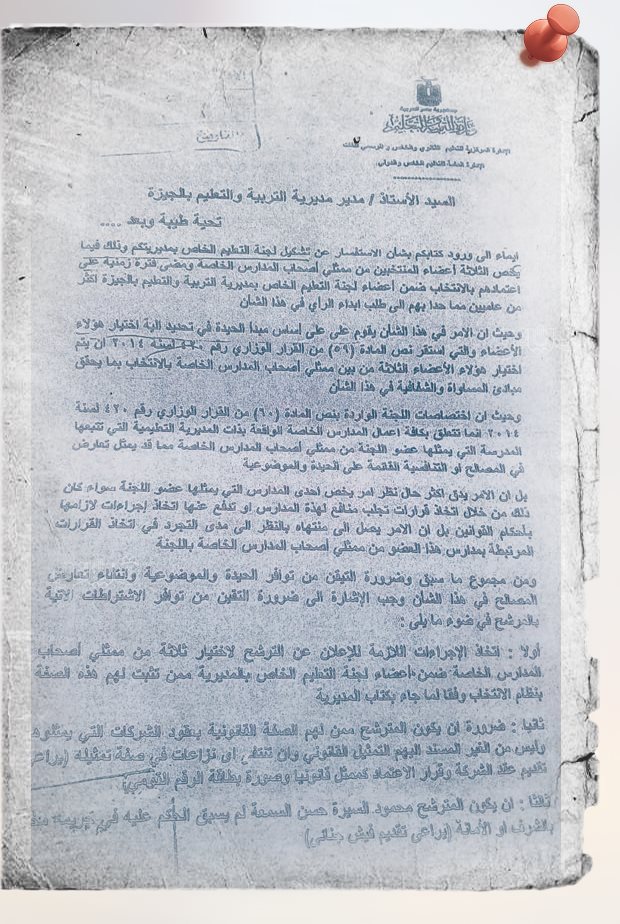 جمهورية مصر العربية
وزارة التربية والتعليم
الإدارة المركزية للتعليم الثانوي والخاص و الرسمي للغات
الإدارة العامة للتعليم الخاص والدولي
السيد الأستاذ / مدير مديرية التربية والتعليم بالجيزة
تحية طيبة وبعد ....
ايماء الى ورود كتابكم بشان الاستفسار عن تشكيل لجنة التعليم الخاص بمديريتكم وذلك فيما
يخص الثلاثة أعضاء المنتخبين من ممثلي أصحاب المدارس الخاصة ومضى فترة زمنية على
اعتمادهم بالانتخاب ضمن أعضاء لجنة التعليم الخاص بمديرية التربية والتعليم بالجيزة أكثر
من عامين مما حدا بهم الى طلب ابداء الراي في هذا الشان
وحيث ان الامر في هذا الشان يقوم على على أساس مبدأ الحيدة في تحديد الية اختيار هؤلاء
الأعضاء والتي استقر نص المادة (٥٩) من القرار الوزاري رقم ٤٢٠ لسنة ٢٠١٤ ان يتم
اختيار هؤلاء الأعضاء الثلاثة من بين ممثلي أصحاب المدارس الخاصة بالانتخاب بما يحقق
مبادئ المساواة والشفافية في هذا الشان
وحيث ان اختصاصات اللجنة الواردة بنص المادة (٦٠) من القرار الوزاري رقم ٤٢٠ لسنة
٢٠١٤ انما تتعلق بكافة اعمال المدارس الخاصة الواقعة بذات المديرية التعليمية التي تتبعها
المدرسة التي يمثلها عضو اللجنة من ممثلي أصحاب المدارس الخاصة مما قد يمثل تعارض
في المصالح او التنافسية القائمة على الحيدة والموضوعية
بل ان الامر يدق اكثر حال نظر امر يخص احدى المدارس التي يمثلها عضو اللجنة سواء كان
ذلك من خلال اتخاذ قرارات تجلب منافع لهذة المدارس او تدفع عنها اتخاذ إجراءات لازامها
بأحكام القوانين بل ان الامر يصل الى منتهاه بالنظر الى مدى التجرد في اتخاذ القرارات
المرتبطة بمدارس هذا العضو من ممثلي أصحاب المدارس الخاصة باللجنة
ومن مجموع ما سبق وضرورة التيقن من توافر الحيدة والموضوعية وانتفاء تعارض
المصالح في هذا الشان وجب الإشارة الى ضرورة التقين من توافر الاشتراطات الاتية
بالمرشح في ضوء ما يلى :
أولا : اتخاذ الإجراءات اللازمة للإعلان عن الترشح لاختيار ثلاثة من ممثلي أصحاب
المدارس الخاصة ضمن أعضاء لجنة التعليم الخاص بالمديرية ممن تثبت لهم هذه الصفة
بنظام الانتخاب وفقا لما جاء بكتاب المديرية
ثانيا : ضرورة ان يكون المترشح ممن لهم الصفة القانونية بعقود الشركات التي يمثلوها
وليس من الغير المسند اليهم التمثيل القانوني وان تنتفى اى نزاعات في صفة تمثيله (يراعى
تقديم عقد الشركة وقرار الاعتماد كممثل قانونيا وصورة بطاقة الرقم القومي)
ثالثا : ان يكون المترشح محمود السيرة حسن السمعة لم يسبق الحكم عليه في جريمة
بالشرف او الأمانة (يراعى تقديم فيش جنائى)